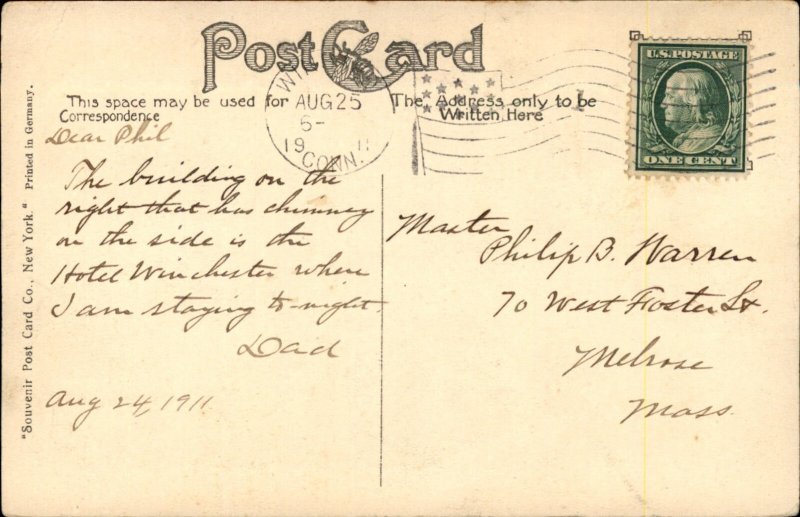 Post Card
This space may be used for
Correspondence
The Address only to be
Written Here
AUG 25
6-
19 11
CONN.
1
U.S. POSTAGE
ONE CENT
"Souvenir Post Card Co., New York." Printed in Germany.
Dear Phil
The building on the
right that has chimney
on the side is the
Hotel Winchester where
I am staying to-night.
Dad
Aug 24, 1911
Master
Philip B. Warren
70 West Foster St.
Melrose
Mass.